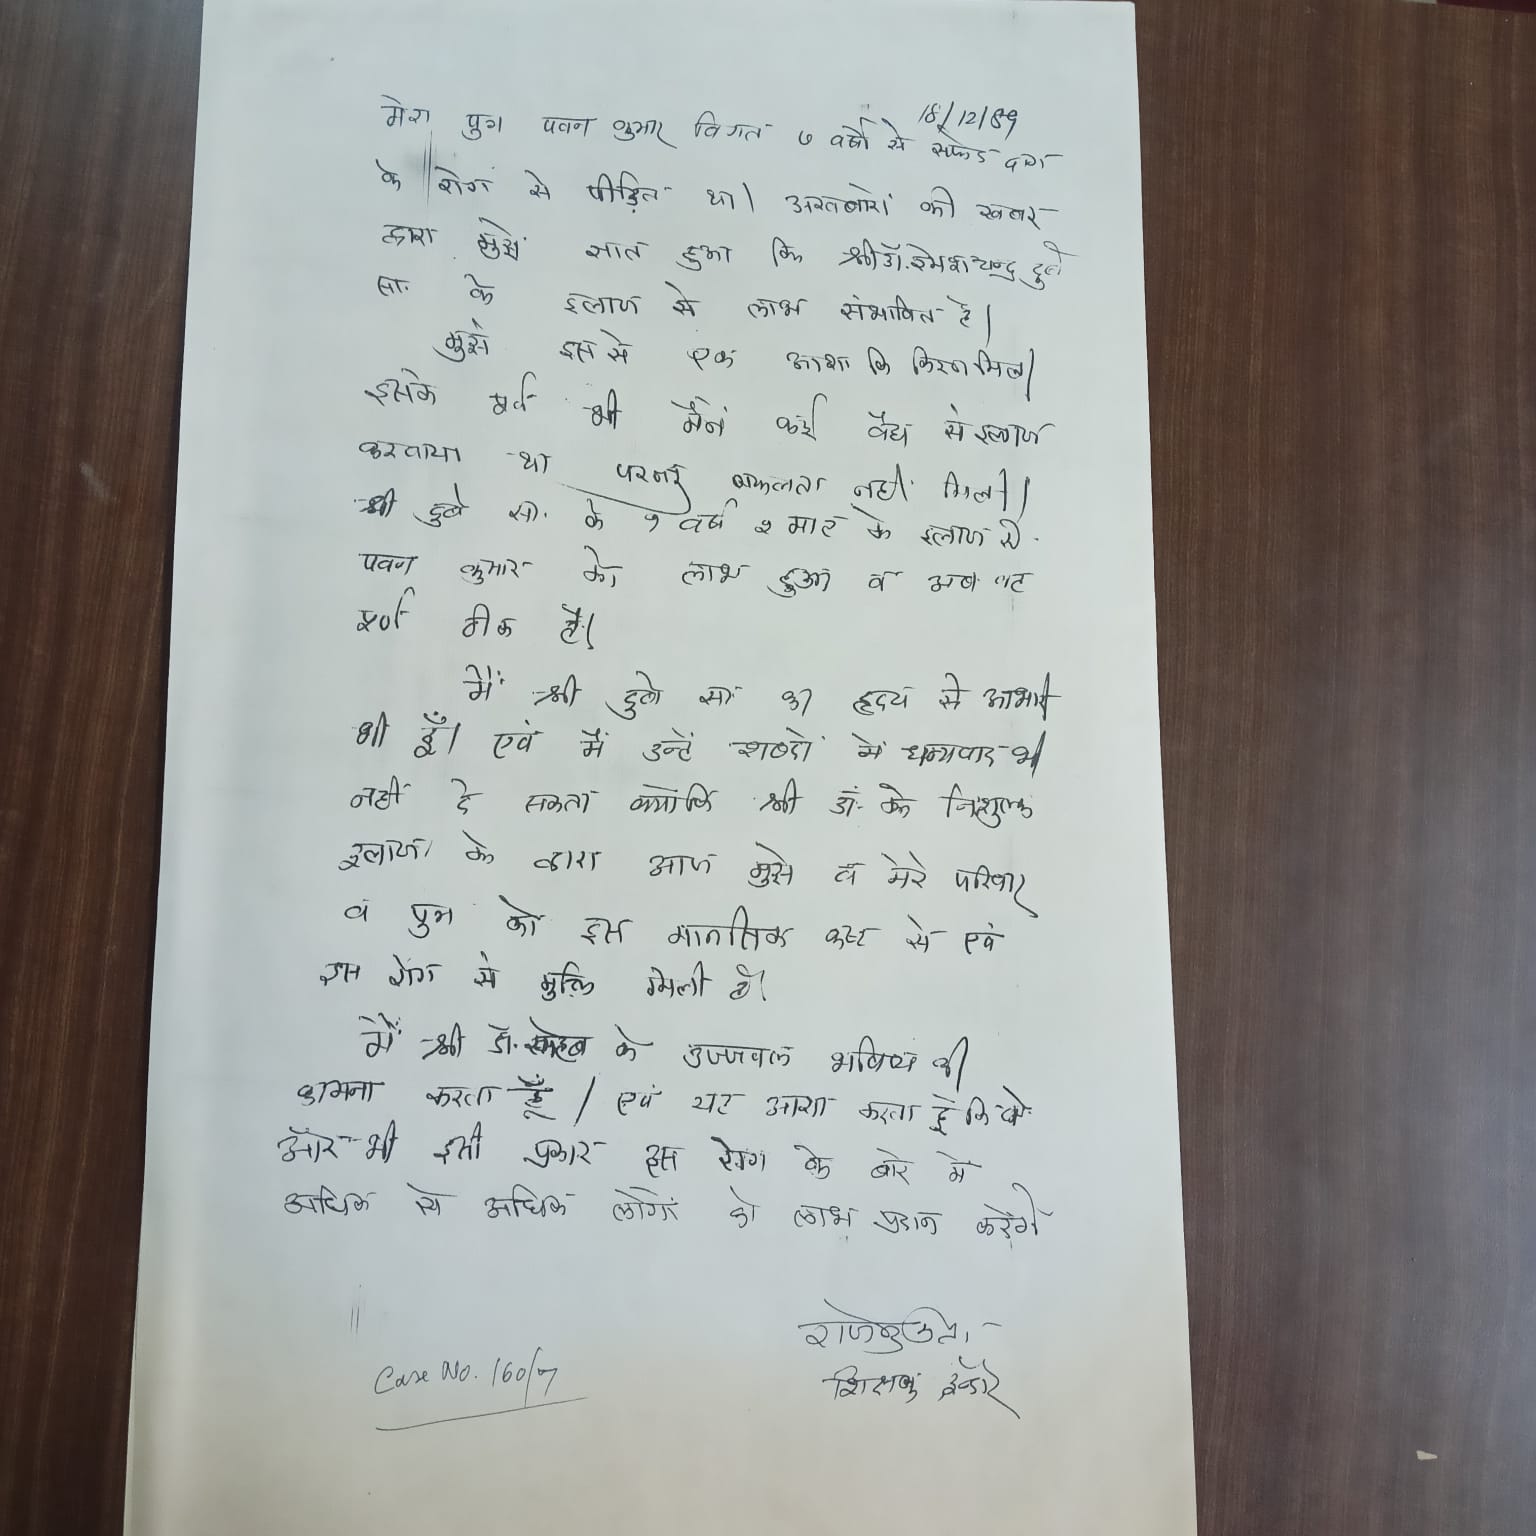 18/12/89
मेरा पुत्र पवन कुमार विगत ७ वर्षो से सफेद दाग
के रोग से पीड़ित था। अखबारों की खबर
द्वारा मुझे ज्ञात हुआ कि श्री डॉ. रमेश चन्द्र दुबे
सा. के इलाज से लाभ संभावित है।
मुझे इस से एक आशा कि किरण मिली
इसके पूर्व भी मैंने कई वैद्य से इलाज
करवाया था परन्तु सफलता नहीं मिली।
श्री दुबे सा. के १ वर्ष २ माह के इलाज से
पवन कुमार को लाभ हुआ व अब वह
पूर्ण ठीक है।
मैं श्री दुबे सा का ह्रदय से आभारी
भी हूँ। एवं मैं उन्हें शब्दों में धन्यवाद भी
नहीं दे सकता क्योंकि श्री डॉ. के निशुल्क
इलाज के द्वारा आज मुझे व मेरे परिवार
व पुत्र को इस मानसिक कष्ट से एवं
इस रोग से मुक्ति मिली है।
मैं श्री डॉ. साहेब के उज्जवल भविष्य की
कामना करता हूँ। एवं यह आशा करता हूँ कि वे
और भी इसी प्रकार इस रोग के बारे में
अधिक से अधिक लोगों को लाभ प्रदान करेंगे
शिक्षक इन्दौर
Case No. 160/7